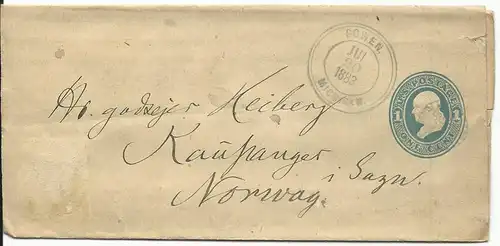 GOWEN,
JUL
20
1882
MICHIGAN.
U.S. POSTAGE
1 1
ONE CENT
Hr. godsejer Heiberg
Kaupanger i Sogn.
Norway.